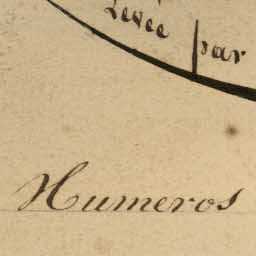 Levée par
Humeros